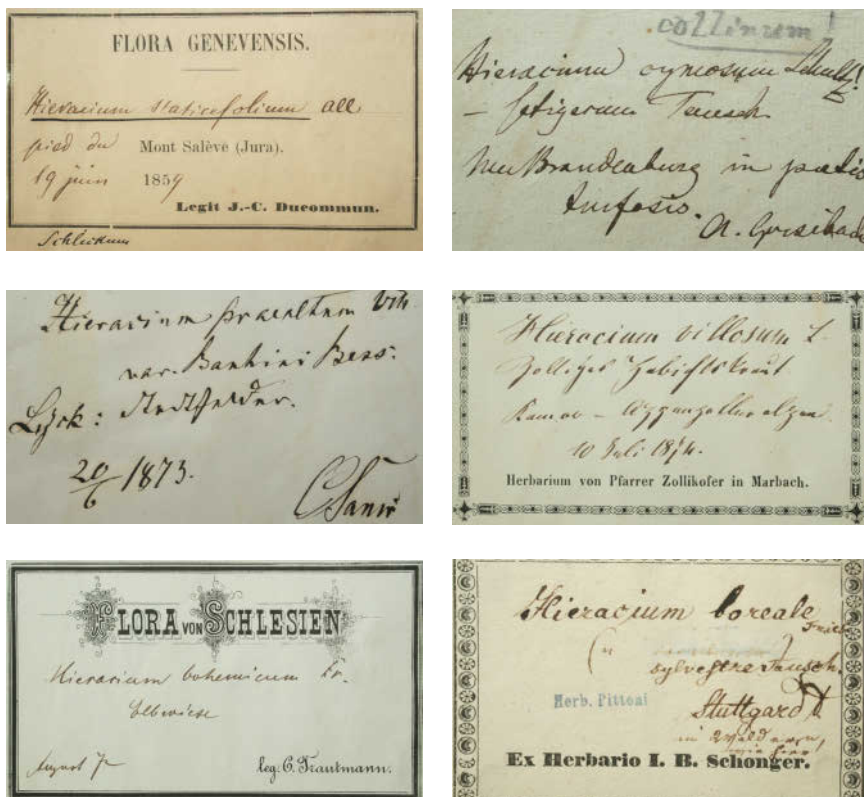 FLORA GENEVENSIS.
Hieracium staticefolium all.
pied du Mont Salève (Jura).
19 juin 1859
Legit J.-C. Ducommun.
Schlickum
collinum!
Hieracium cymosum Schultz!
– setigerum Tausch.
NeuBrandenburg in
A. Grisebach
Hieracium praealtum Vill.
var. Bauhini Bess:
Lyck: Stadtfelder.
20/6 1873.
C Sanio
Hieracium villosum L.
Zottiges Habichtskraut
Kamor – Appenzelleralpen
10 Juli 1874.
Herbarium von Pfarrer Zollikofer in Marbach.
FLORA VON SCHLESIEN
Hieracium bohemicum Fr.
Elbwiese
August 72
leg. C. Trautmann.
Hieracium boreale Fries
sylvestre Tausch.
Herb. Pittoni
Stuttgardt
in Wäldern,
Ex Herbario I. B. Schonger.